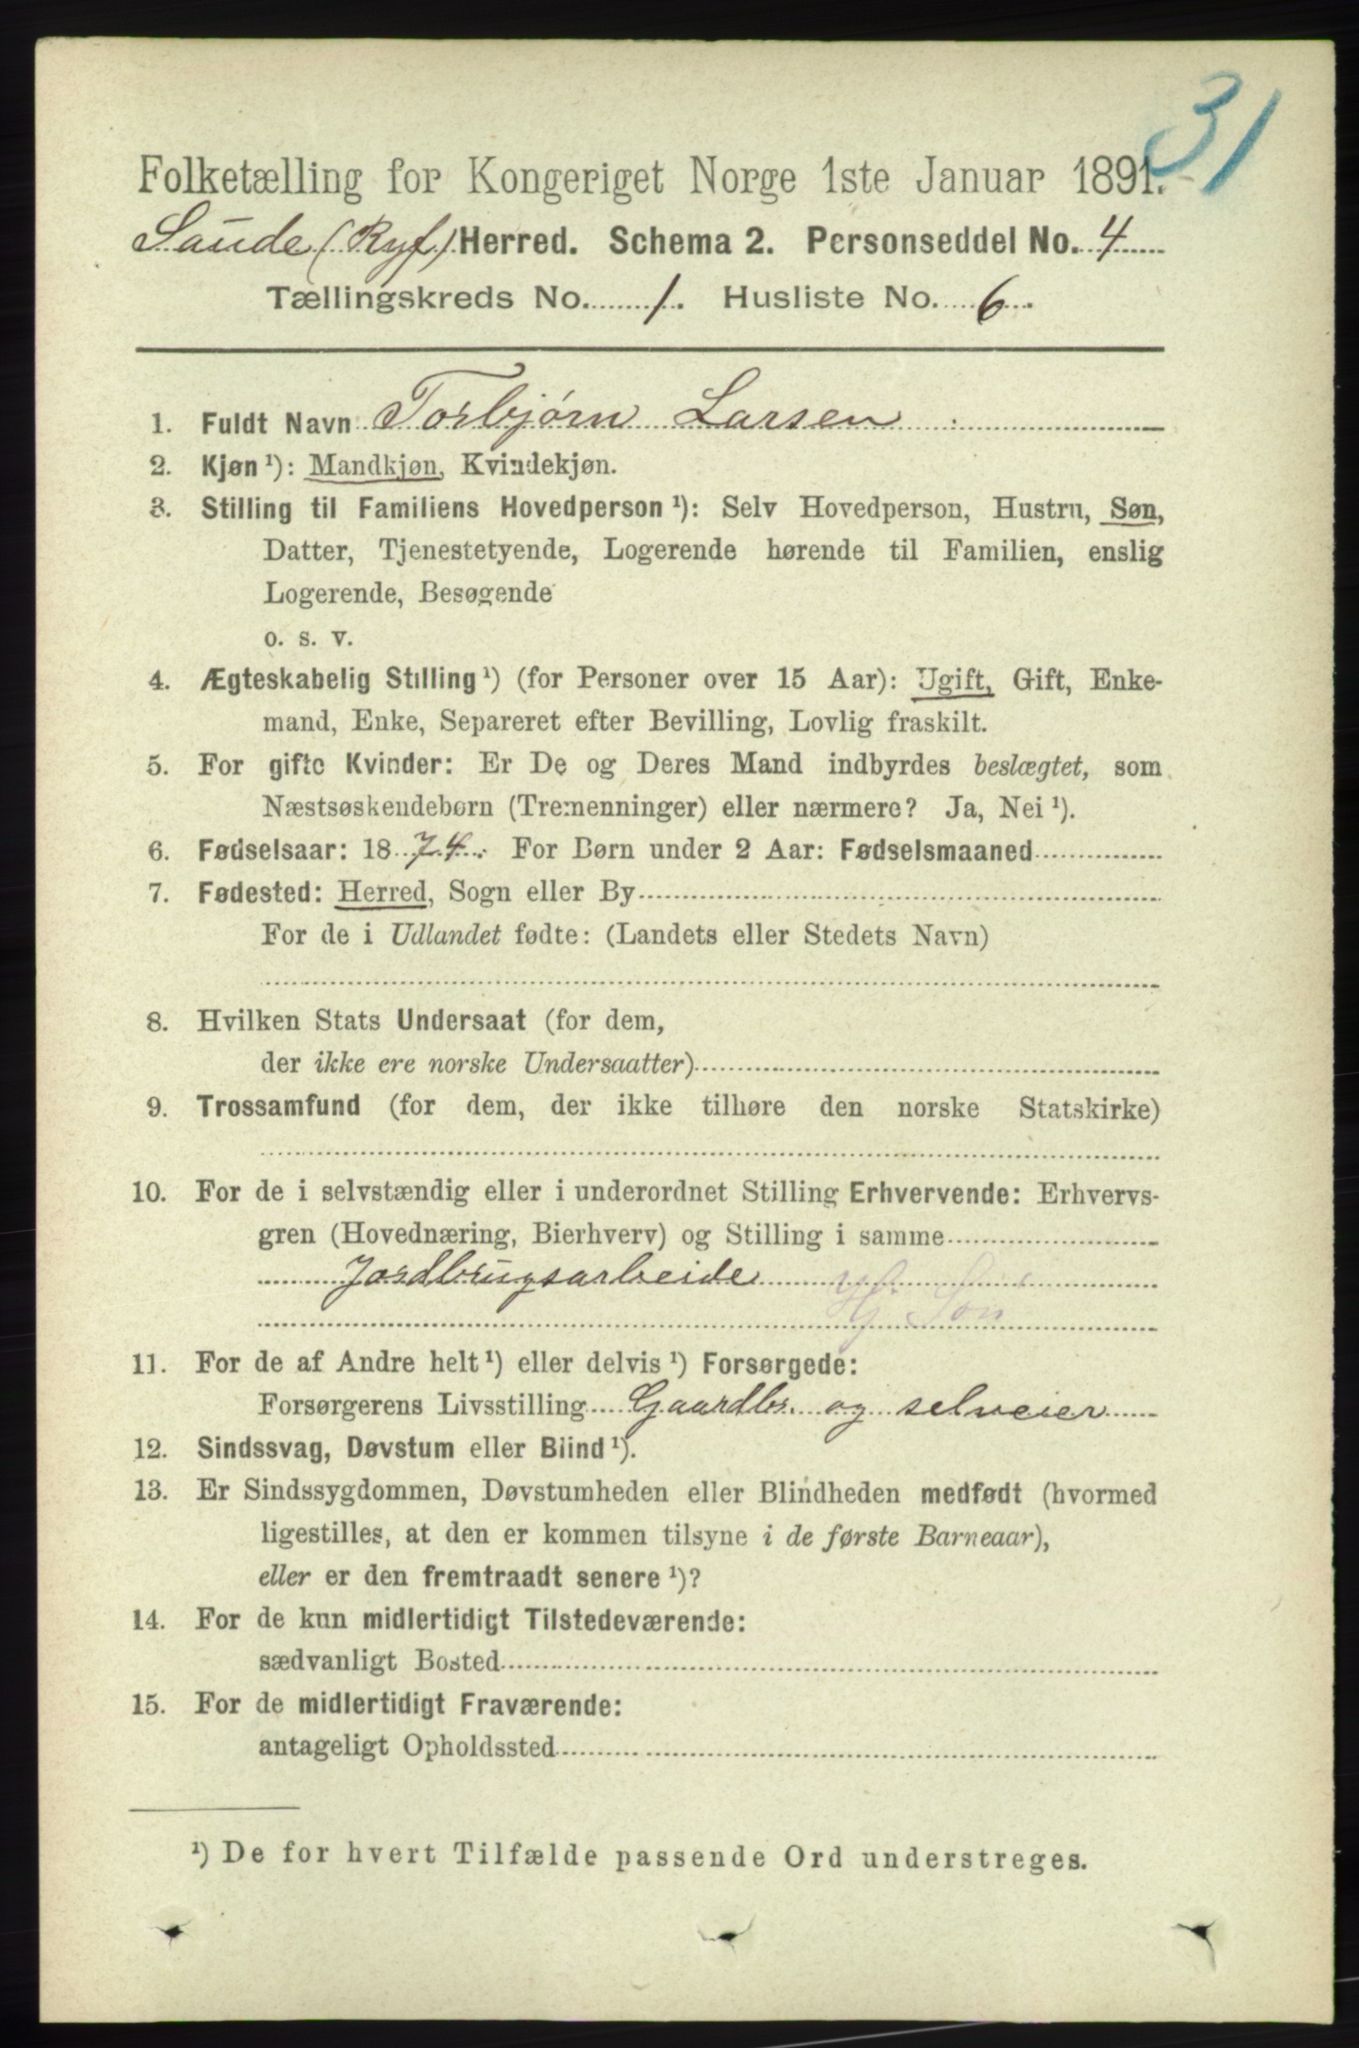 31
Folketælling for Kongeriget Norge 1ste Januar 1891.
Saude (Ryf) Herred. Schema 2. Personseddel No. 4
Tællingskreds No. 1. Husliste No. 6.
1. Fuldt Navn Torbjørn Larsen
2. Kjøn ¹): Mandkjøn, Kvindekjøn.
3. Stilling til Familiens Hovedperson ¹): Selv Hovedperson, Hustru, Søn,
Datter, Tjenestetyende, Logerende hørende til Familien, enslig
Logerende, Besøgende
o. s. v.
4. Ægteskabelig Stilling ¹) (for Personer over 15 Aar): Ugift, Gift, Enke-
mand, Enke, Separeret efter Bevilling, Lovlig fraskilt.
5. For gifte Kvinder: Er De og Deres Mand indbyrdes beslægtet, som
Næstsøskendebørn (Tremenninger) eller nærmere? Ja, Nei ¹).
6. Fødselsaar: 1874. For Børn under 2 Aar: Fødselsmaaned
7. Fødested: Herred, Sogn eller By
For de i Udlandet fødte: (Landets eller Stedets Navn)
8. Hvilken Stats Undersaat (for dem,
der ikke ere norske Undersaatter)
9. Trossamfund (for dem, der ikke tilhøre den norske Statskirke)
10. For de i selvstændig eller i underordnet Stilling Erhvervende: Erhvervs-
gren (Hovednæring, Bierhverv) og Stilling i samme
Jordbrugsarbeide Hj. Søn
11. For de af Andre helt ¹) eller delvis ¹) Forsørgede:
Forsørgerens Livsstilling Gaardbr. og selveier
12. Sindssvag, Døvstum eller Blind ¹).
13. Er Sindssygdommen, Døvstumheden eller Blindheden medfødt (hvormed
ligestilles, at den er kommen tilsyne i de første Barneaar),
eller er den fremtraadt senere ¹)?
14. For de kun midlertidigt Tilstedeværende:
sædvanligt Bosted
15. For de midlertidigt Fraværende:
antageligt Opholdssted
¹) De for hvert Tilfælde passende Ord understreges.